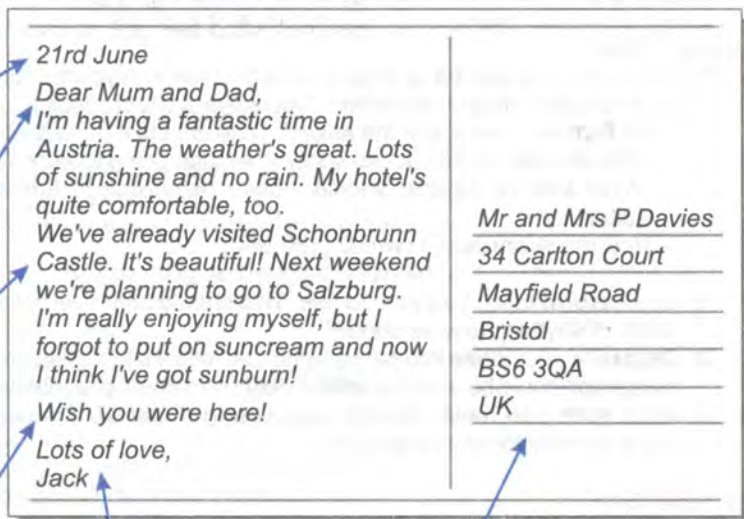 21rd June
Dear Mum and Dad,
I'm having a fantastic time in
Austria. The weather's great. Lots
of sunshine and no rain. My hotel's
quite comfortable, too.
We've already visited Schonbrunn
Castle. It's beautiful! Next weekend
we're planning to go to Salzburg.
I'm really enjoying myself, but I
forgot to put on suncream and now
I think I've got sunburn!
Wish you were here!
Lots of love,
Jack
Mr and Mrs P Davies
34 Carlton Court
Mayfield Road
Bristol
BS6 3QA
UK